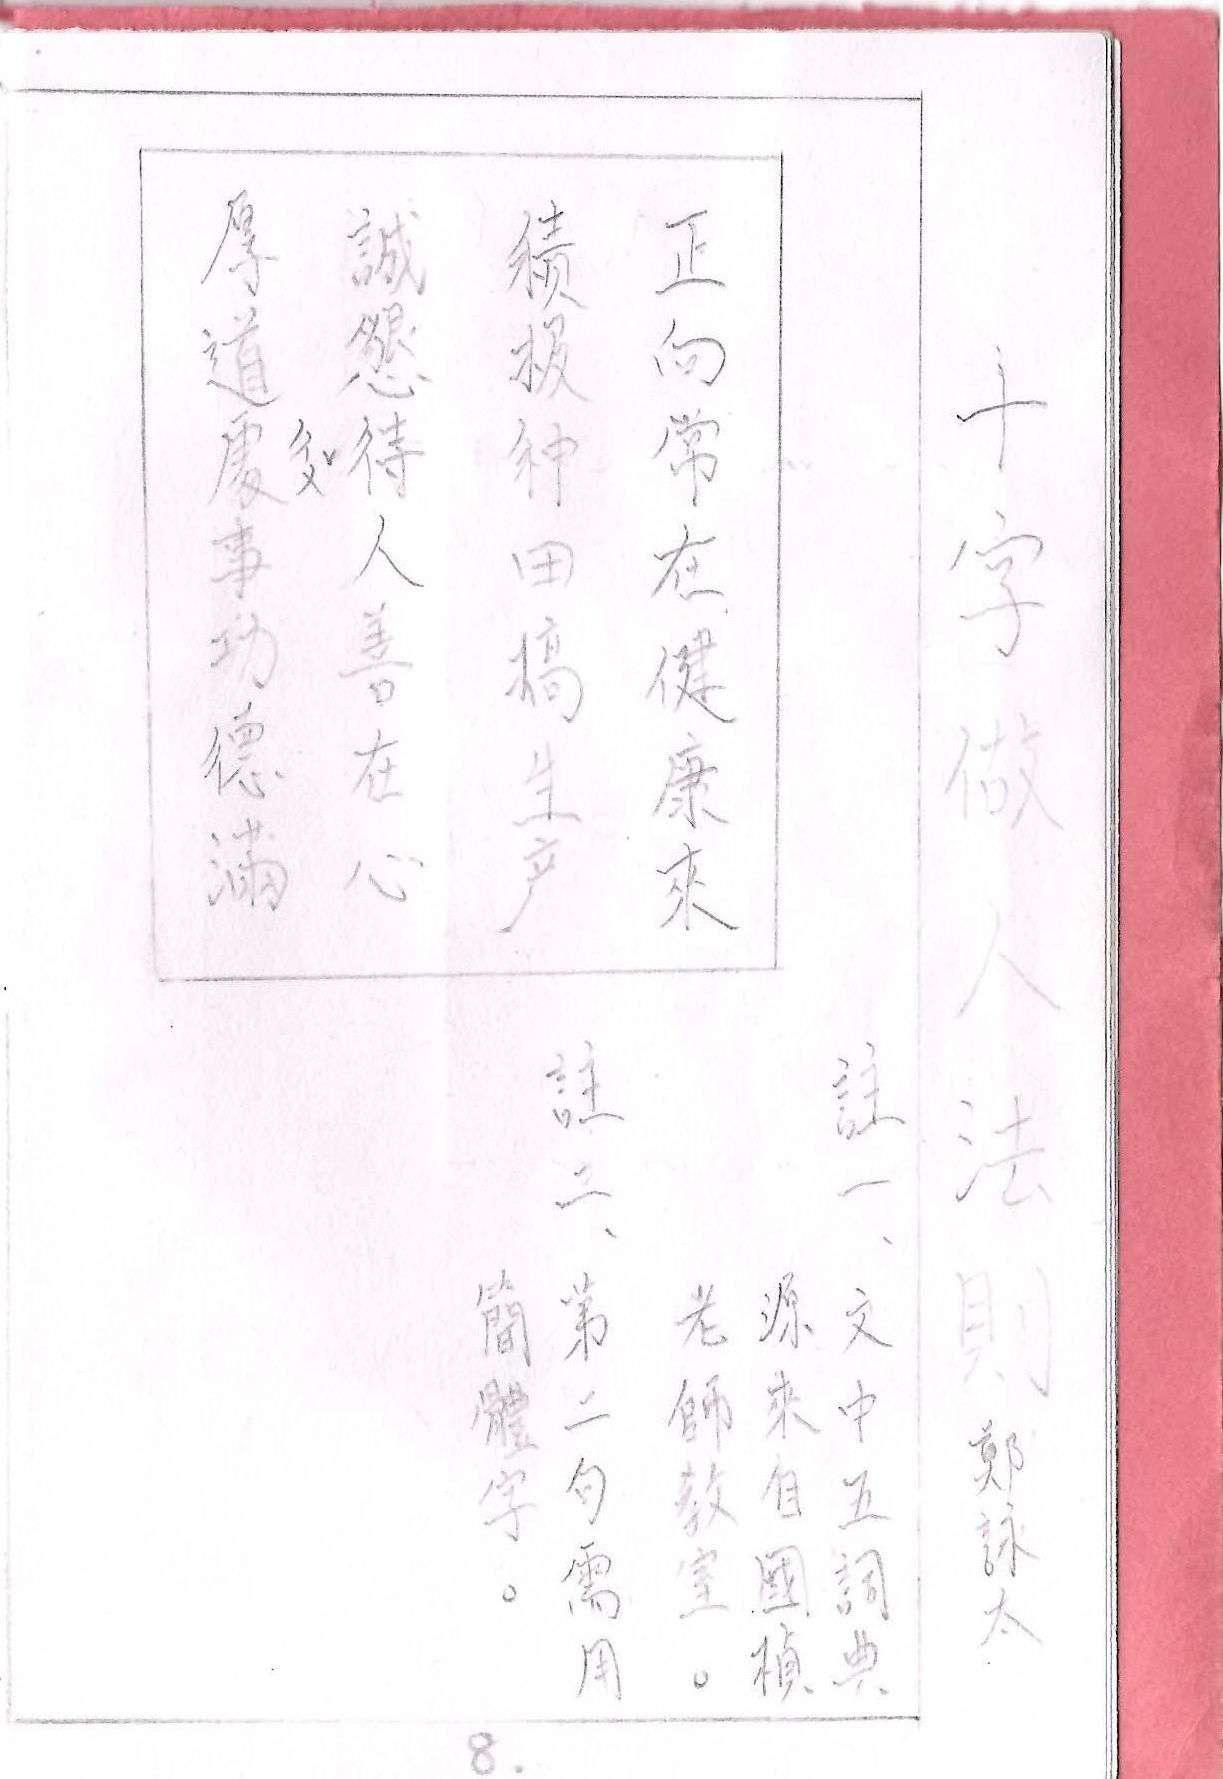 十字做人法則 鄭詠太
正向常在健康來
積极种田搞生产
誠懇待人善在心
厚道處事功德滿
註一、文中五詞典
源來自國楨
老師教室。
註二、第二句需用
簡體字。
8.